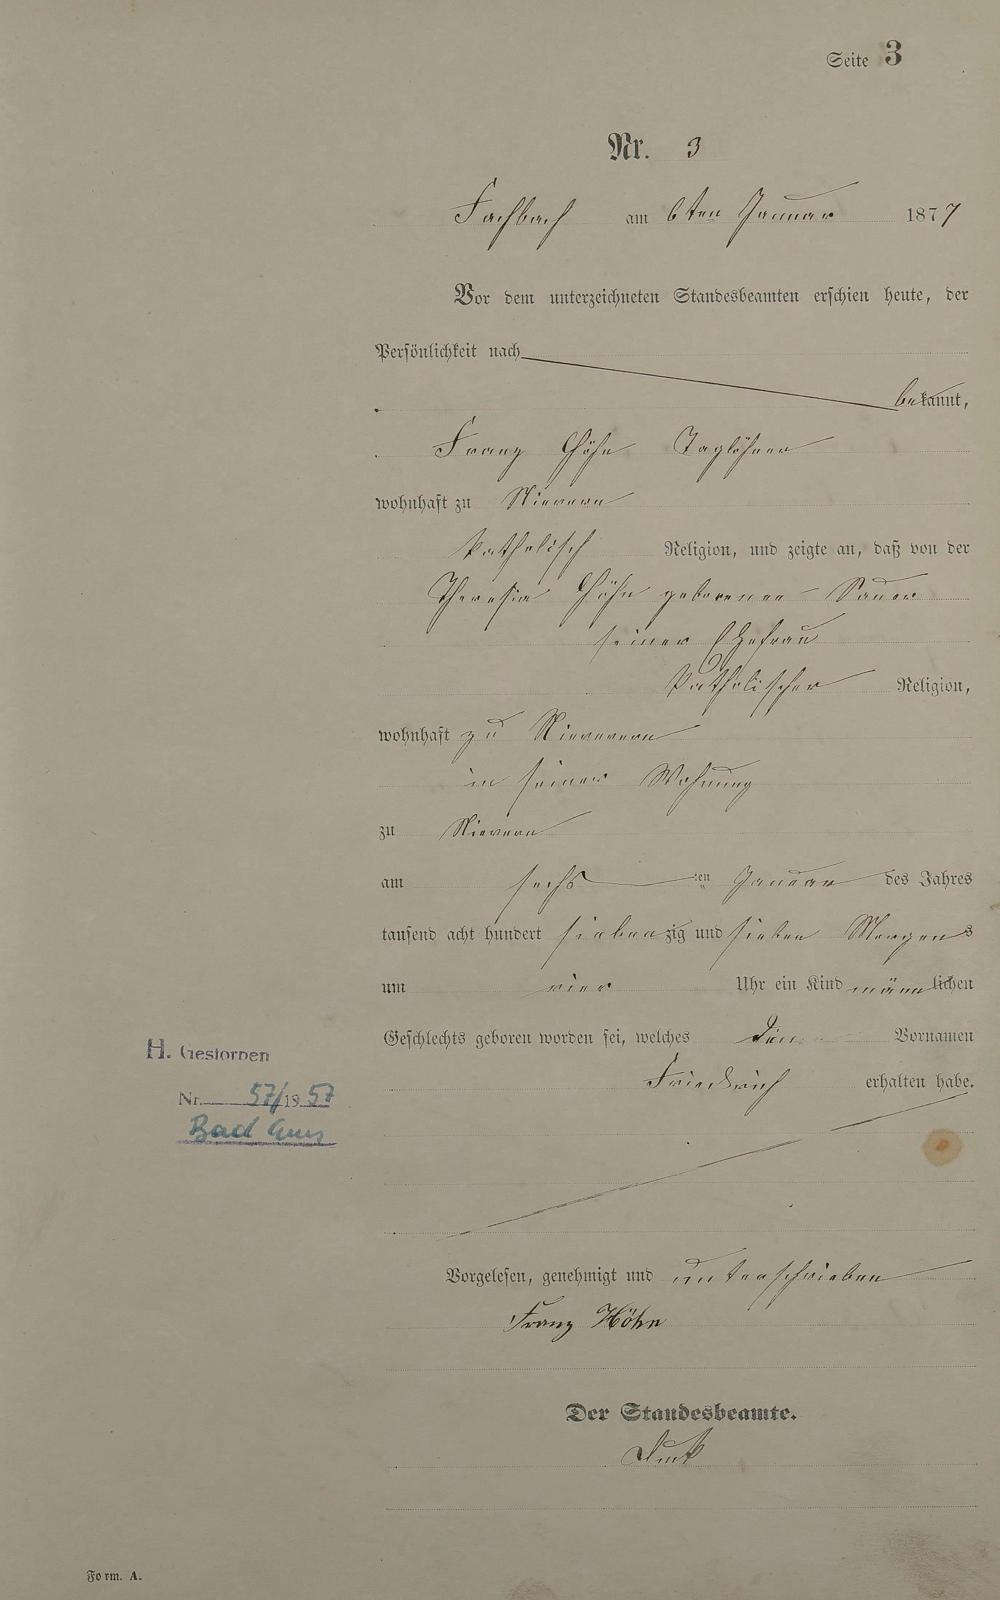 Seite 3
Nr. 3
Fachbach am 6ten Januar 1877
Vor dem unterzeichneten Standesbeamten erschien heute, der
Persönlichkeit nach
bekannt,
Franz Höhn Taglöhner
wohnhaft zu Nievern
katholisch Religion, und zeigte an, daß von der
Theresia Höhn geborenen Sauer
seiner Ehefrau
katholischer Religion,
wohnhaft zu Nievern
in seiner Wohnung
zu Nievern
am sechs ten Januar des Jahres
tausend acht hundert siebenzig und sieben Morgens
um vier Uhr ein Kind männlichen
Geschlechts geboren worden sei, welches den Vornamen
Friedrich erhalten habe.
H. Gestorben
Nr. 57/1957
Bad Ems
Vorgelesen, genehmigt und unterschrieben
Franz Höhn
Der Standesbeamte.
Form. A.